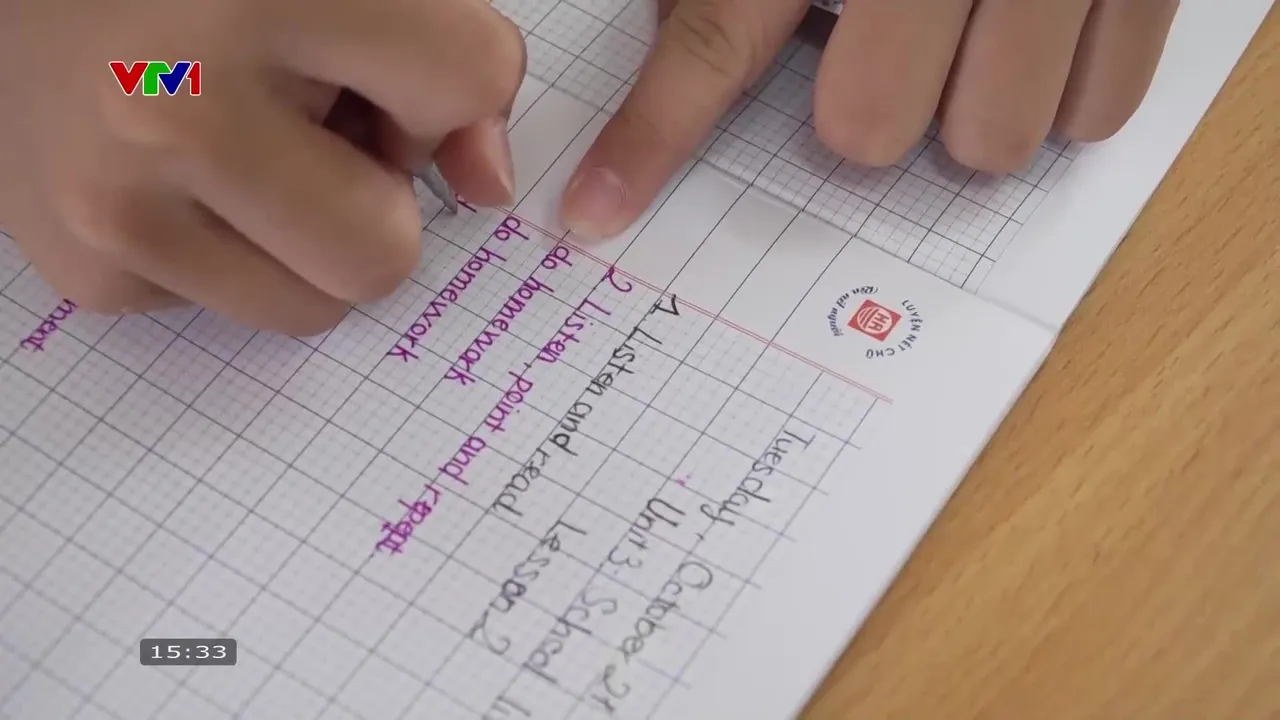 VTV1
LUYỆN NÉT CHỮ
Rèn nết người
HA
Tuesday, October 21
Unit 3: School
Lesson 2
1 Listen and read
2 Listen, point and repept.
do homewark
do homework
ment
15:33